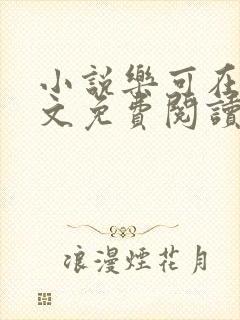 小說樂可在
文免費閱讀
浪漫煙花月